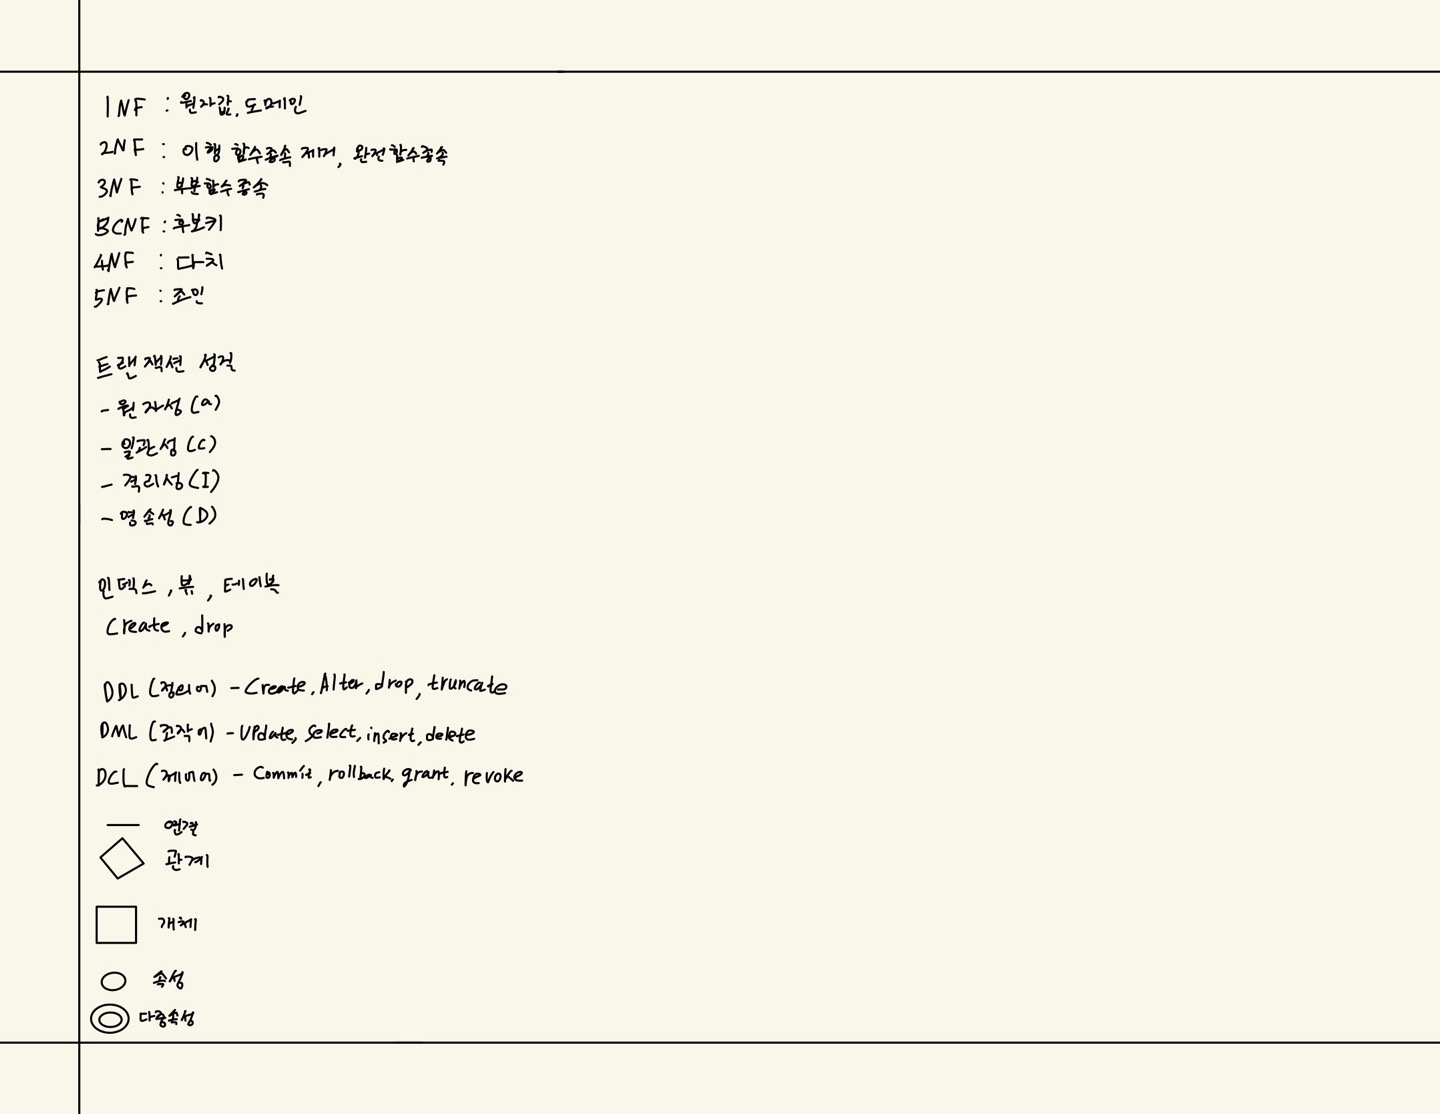 1NF : 원자값, 도메인
2NF : 이행 함수종속 제거, 완전함수종속
3NF : 부분함수종속
BCNF : 후보키
4NF : 다치
5NF : 조인
트랜잭션 성질
- 원자성 (a)
- 일관성 (c)
- 격리성 (I)
- 영속성 (D)
인덱스, 뷰, 테이블
Create, drop
DDL (정의어) - Create, Alter, drop, truncate
DML (조작어) - UPdate, Select, insert, delete
DCL (제어어) - Commit, rollback, grant, revoke
연결
관계
개체
속성
다중속성